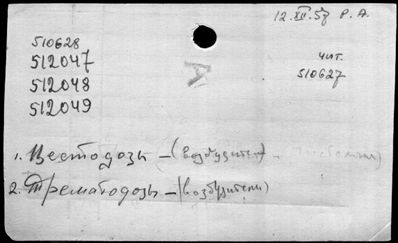 12.XII.57 Р. А.
510628
512047
512048
512049
чит.
510627
1. Цестодозы - (возбудители)
2. Трематодозы - (возбудители)